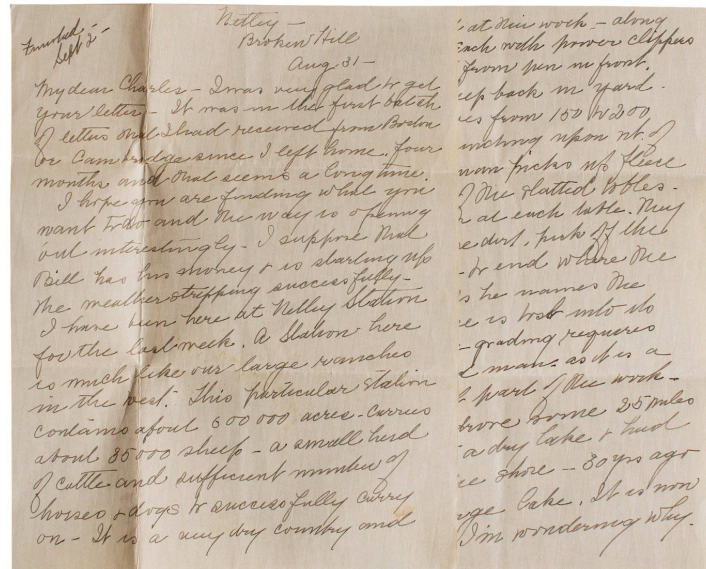 Finished -
Sept 2 -
Netley -
Broken Hill
Aug 31 -
My dear Charles - I was very glad to get
your letter - It was in the first batch
of letters that I had received from Boston
or Cambridge since I left home. Four
months and that seems a long time.
I hope you are finding what you
want to do and the way is opening
out interestingly - I suppose that
Bill has his money & is starting up
the weatherstripping successfully -
I have been here at Netley Station
for the last week. A Station here
is much like our large ranches
in the west. This particular station
contains about 600 000 acres - carries
about 35000 sheep - a small herd
of cattle and sufficient number of
horses & dogs to successfully carry
on - It is a very dry country and
at this work - along
each with power clippers
from pen in front.
back in yard.
from 150 to 200
upon wt. of
man picks up fleece
the slatted tables -
at each table. They
dirt, pick off the
to end where the
he names the
is tost into its
- grading requires
man - as it is a
part of the work -
drove some 25 miles
a dry lake & had
shore - 30 yrs ago
lake. It is now
I'm wondering why.